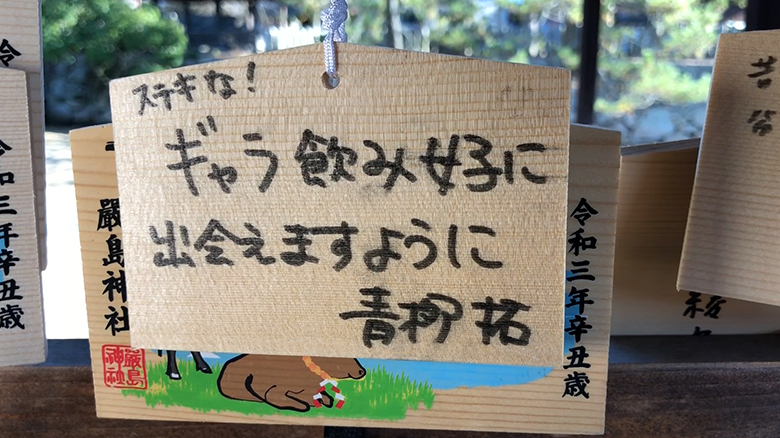 ステキな!
ギャラ飲み女子に
出会えますように
青柳 拓
嚴島神社
令和三年辛丑歳
嚴島
神社
令和三年辛丑歳
令
若
谷